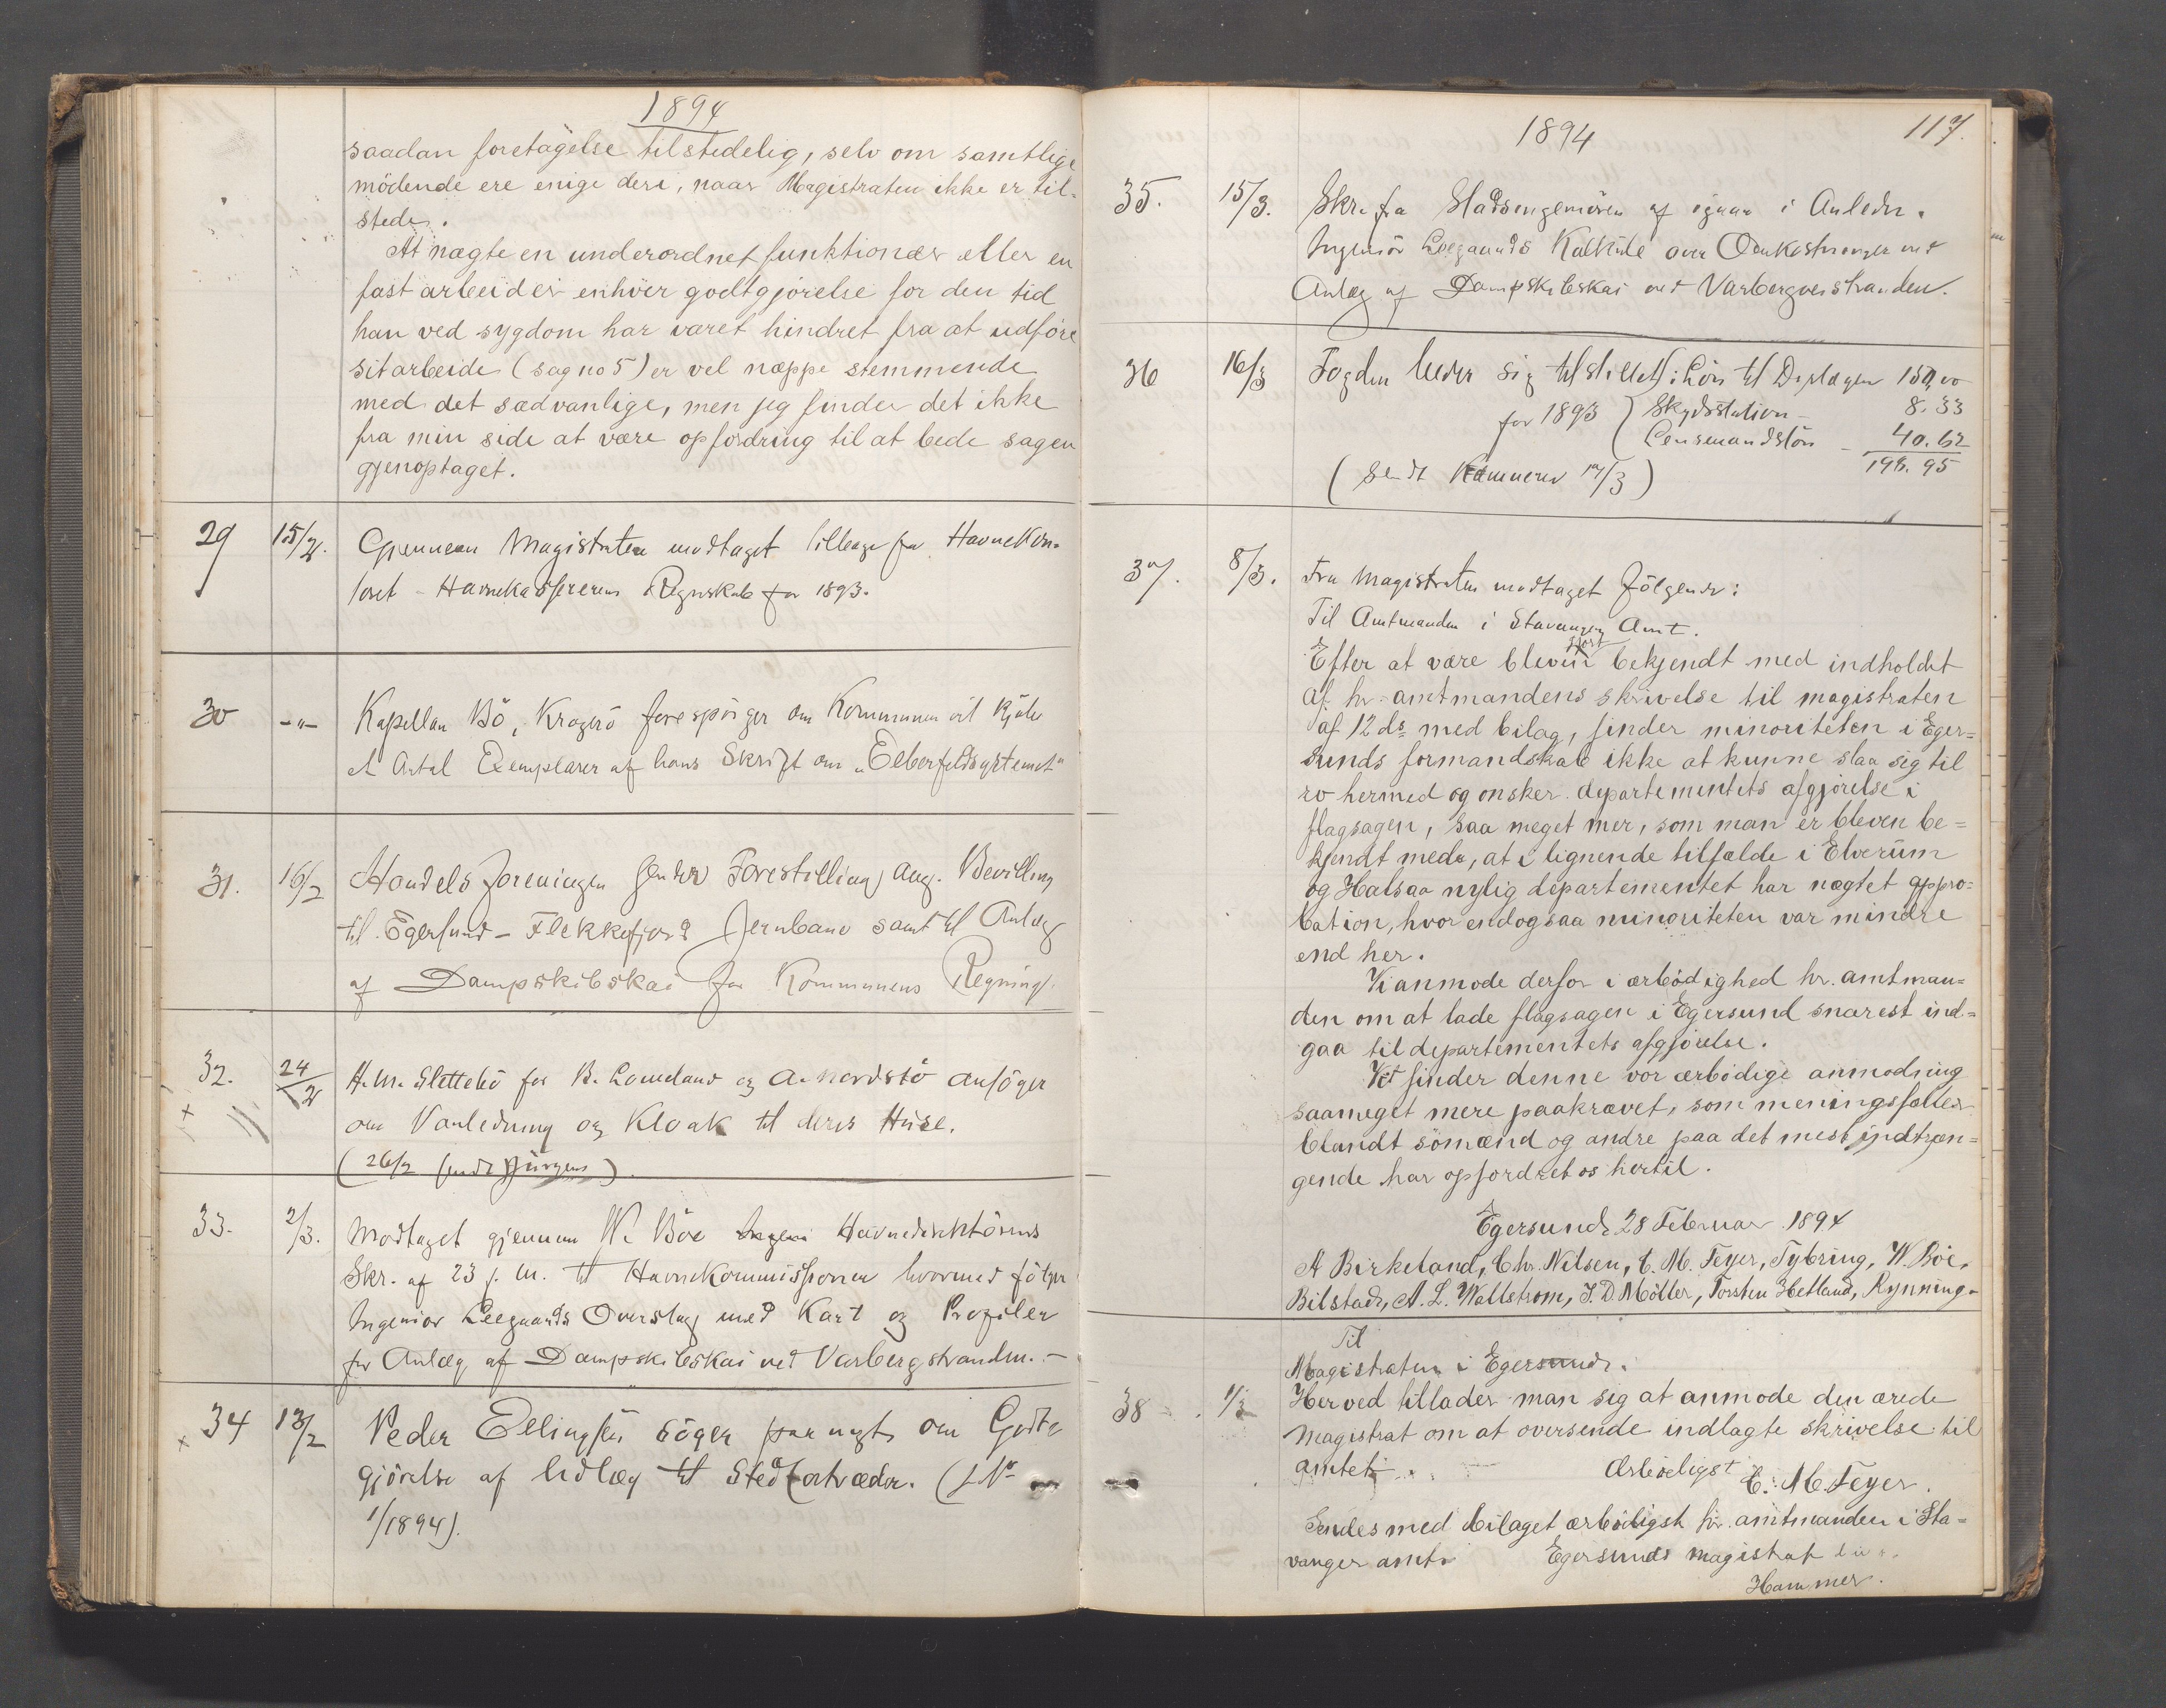 1894
saadan foretagelse tilstedelig, selv om samtlige
mödende ere enige deri, naar Magistraten ikke er til-
stede.
At nægte en underordnet funktionær eller en
fast arbeider enhver godtgjörelse for den tid
han ved sygdom har været hindret fra at udföre
sit arbeide (sag no 5) er vel næppe stemmende
med det sædvanlige, men jeg finder det ikke
fra min side at være opfordring til at bede sagen
gjenoptaget.
29 15/2. Gjennem Magistraten modtaget tilbage fra Havnekon-
toret - Havnekassererens Regnskab for 1893.
30 -"- Kapellan Bö, Kragerö forespörger om Kommunen vil kjöbe
et Antal Exemplarer af hans Skrift om "Elberfeldsystemet"
31. 16/2 Handelsforeningen sender Forestilling ang. Bevilling
til Egersund - Flekkefjord Jernbane samt til Anlæg
af Dampskibskai for Kommunens Regning.
32. 24/2 H. M. Slettebö for B. Lomeland og A. Nordstö ansöger
om Vanledning og Kloak til deres Huse.
(26/2 sendt Jürgens).
33. 2/3. Modtaget gjennem W. Böe Havnedirektörens
Skr. af 23 f. M. til Havnekommissionen hvormed fölger
Ingeniör Leegaards Overslag med Kart og Profiler
for Anlæg af Dampskibskai ved Varbergstranden. -
x 34 13/2 Peder Ellingsen söger paa nyt om Godt-
gjörelse af Udlæg til Stedfortræder. (J. No
1/1894).
1894
117.
35. 15/3. Skr. fra Stadsingeniören af igaar i Anledn.
Ingeniör Leegaards Kalkule over Omkostninger ved
Anlæg af Dampskibskai ved Varbergveistranden.
36 16/3 Fogden beder sig tilstillet: Lön til Dyrlægen 150,00
for 1893 Skydsstation - 8.33
Lensmandslön - 40.62
198.95
(Sendt Kæmneren 17/3)
37. 8/3. Fra Magistraten modtaget fölgende:
Til Amtmanden i Stavanger Amt.
gjort
Efter at være bleven bekjendt med indholdet
af hr. amtmandens skrivelse til magistraten
af 12 ds. med bilag, finder minoriteten i Eger=
sunds formandskab ikke at kunne slaa sig til
ro hermed og önsker departementets afgjörelse i
flagsagen, saa meget mer, som man er bleven be=
kjendt med, at i lignende tilfælde i Elverum
og Halsaa nylig departementet har nægtet appro=
bation, hvor endogsaa minoriteten var mindre
end her.
Vi anmode derfor i ærbödighed hr. amtman=
den om at lade flagsagen i Egersund snarest ind=
gaa til departementets afgjörelse.
Vi finder denne vor ærbödige anmodning
saameget mere paakrævet, som meningsfæller
blandt sömænd og andre paa det mest indtræn=
gende har opfordret os hertil.
Egersund, 28 Februar 1894
A Birkeland, Chr. Nilsen, C. M. Feyer, Tybring, W. Böe,
Bilstad, A. L. Wallstrom, J. D. Möller, Torsten Hetland, Rynning.
Til
Magistraten i Egersund.
38 1/3 Herved tillader man sig at anmode den ærede
magistrat om at oversende indlagte skrivelse til
amtet. Ærbödigst C. M. Feyer.
Sendes med bilaget ærbödigst hr. amtmanden i Sta=
vanger amt. Egersunds magistrat
Hammer.